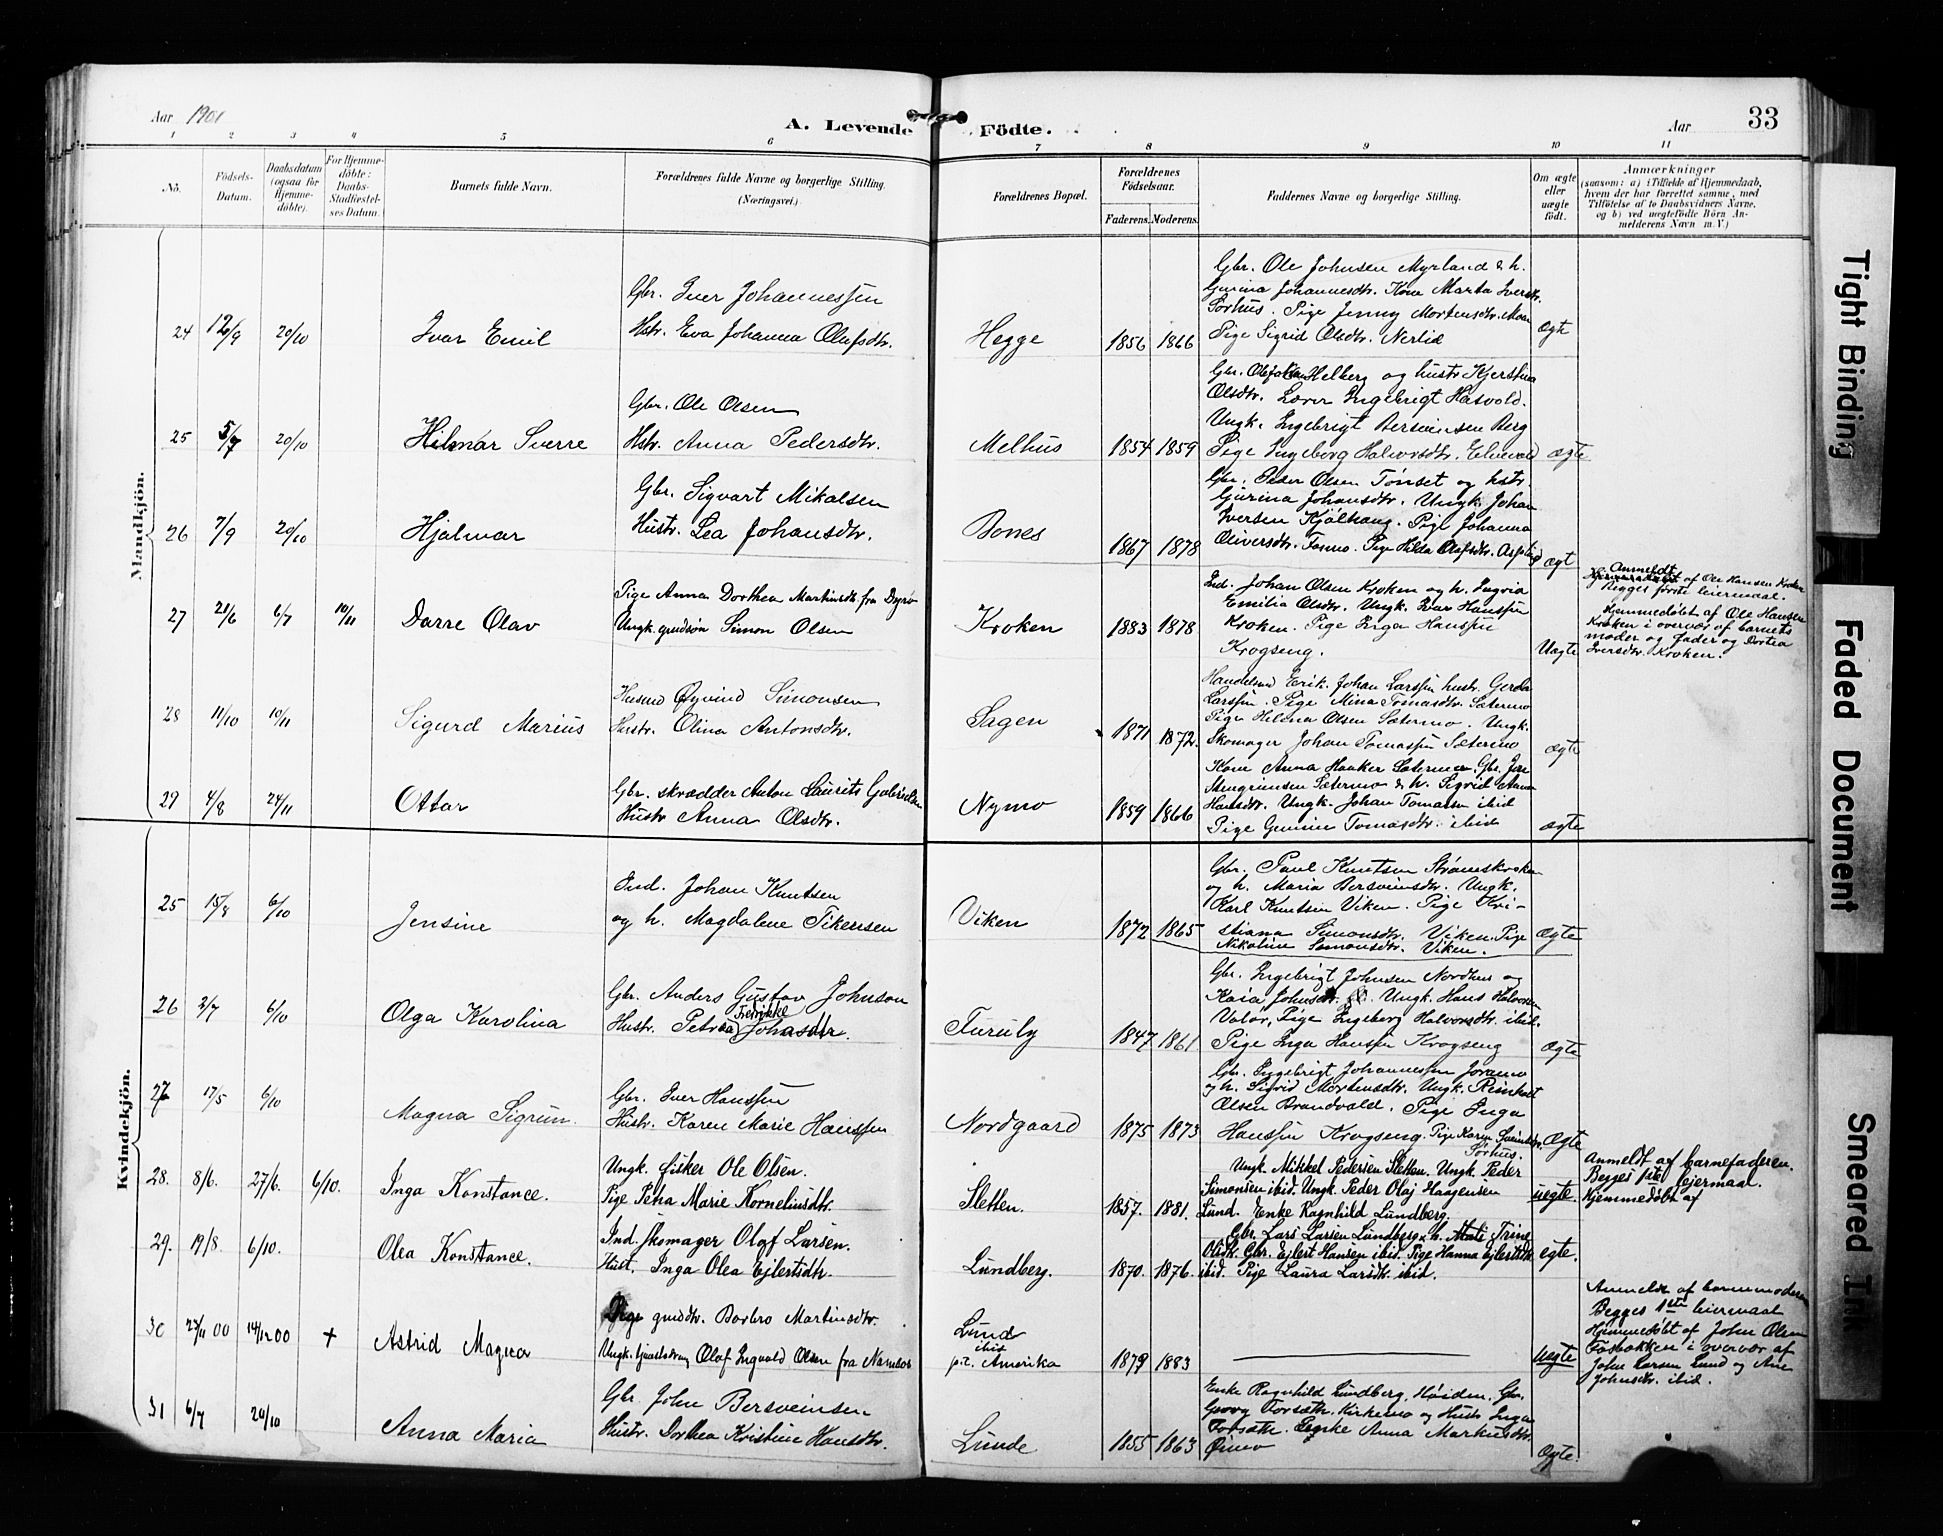 Aar 1901
A. Levende Födte.
Aar
33
1 2 3 4 5 6 7 8 9 10 11
No.
Födsels-Datum.
Daabsdatum (ogsaa for Hjemme-döbte).
For Hjemme-döbte: Daabs-Stadfæstel-ses Datum.
Barnets fulde Navn.
Forældrenes fulde Navne og borgerlige Stilling. (Næringsvei.)
Forældrenes Bopæl.
Forældrenes Födselsaar.
Faderens. Moderens.
Faddernes Navne og borgerlige Stilling.
Om ægte eller uægte födt.
Anmærkninger
(saasom: a) i Tilfælde af Hjemmedaab,
hvem der har forrettet samme, med
Tilföielse af to Daabsvidners Navne,
og b) ved uægtefödte Börn An-
melderens Navn m. V.)
Mandkjön.
24 12/9 20/10 Ivar Emil
Gbr. Iver Johannessen
Hstr. Eva Johanna Olufsdtr.
Hegge 1856 1866
Gbr. Ole Johnsen Myrland & h.
Gurina Johannesdtr. Kone Marta Iversdtr.
Sørhus. Pige Jenny Mortensdtr. Moen
Pige Sigrid Olsdtr. Nerlid
Ægte
25 5/7 20/10 Hilmar Sverre
Gbr. Ole Olsen
Hstr. Anna Pedersdtr.
Melhus 1854 1859
Helberg og hustr Kjerstina
Olsdtr. Lærer Ingebrigt Hasvold.
Ungk. Ingebrigt Bersvensen Berg
Pige Ingeborg Halvorsdtr.
ægte
26 7/9 20/10 Hjalmar
Gbr. Sigvart Mikalsen
Hustr. Lea Johansdtr.
Bones 1867 1878
Gbr. Peder Olsen Tønset og hstr.
Gjurina Johansdtr. Ungk. Johan
Iversen Kjølhaug. Pige Johanna
Oliversdtr. Fanmo. Pige Hilda Olafsdtr.
ægt
27 21/6 6/7 10/11 Darre Olav
Pige Anna Dorthea Martinsdtr. fra Dyrø
Ungk. grdsøn Simon Olsen
Kroken 1883 1878
Ind. Johan Olsen Kroken og h. Ingvia
Emilia Olsdtr. Ungk. Ivar Hanssen
Kroken. Pige Inga Hanssen
Krogseng.
Uægte
Anmeldt
af Ole Hansen Kroken
Begges første leiermaal.
Hjemmedøbt af Ole Hansen
Kroken i overvær af barnets
moder og fader og Dortea
Iversdtr. Kroken.
28 11/10 10/11 Sigurd Marius
Husmd Øyvind Simonsen
Hustr. Olina Antonsdtr.
Sagen 1871 1872.
Handelsmd Erik Johan Larssen hustr. Gerda
Larssen. Pige Mina Tomasdtr. Sætermo
Pige Helena Olsen Sætermo. Ungk.
Skomager Johan Tomassen Sætermo
ægte
29 4/8 24/11 Ottar
Gbr. skrædder Anton Laurits Gabrielsen
Hustr Anna Olsdtr.
Nymo 1859 1866
Kone Anna Haaker Sætermo, Gbr. Jon
Arngrimsen Sætermo & h. Sigrid Anna
Hansdtr. Ungk. Johan Tomassen ibid
Pige Gunnine Tomasdtr. ibid
ægte
Kvindekjön.
25 15/8 6/10 Jensine
Ind. Johan Knutsen
og h. Magdalene Tikensen
Viken 1872 1865
Gbr. Paul Knutsen Strømskroken
og h. Maria Bersvensdtr. Ungk.
Karl Knutsen Viken. Pige Kri-
stiana Simonsdtr. Viken. Pige
Nikoline Simonsdtr. Viken.
Ægte
26 2/7 6/10 Olga Karolina
Gbr. Anders Gustav Johnson
Fredrikke
Hustr. Petra Johnsdtr.
Furuly 1847 1861
Gbr. Ingebrigt Johnsen Nordhus og
Kaia Johnsdtr. Ungk. Hans Halvorsen
Valør, Pige Ingeborg Halvorsdtr. ibid.
Pige Inga Hanssen Krogseng
Ægte
27 17/5 6/10 Magna Sigrun.
Gbr. Iver Hanssen
Hustr. Karen Marie Hanssen
Nordgaard 1875 1873
Gbr. Ingebrigt Johannessen Joramo
og h. Sigrid Mortensdtr. Ungk. Reinhart
Olsen Brandvold. Pige Inga
Hanssen Krogseng. Pige Karen
Sørhus.
Ægte
28. 8/6. 27/6. 6/10. Inga Konstance.
Ungk. fisker Ole Olsen.
Pige Petra Marie Korneliusdtr.
Sletten. 1857. 1881.
Ungk. Mikkel Pedersen Sletten. Ungk. Peder
Simonsen ibid. Ungk. Peder Olaj Haagensen
Lund. Enke Ragnhild Lundberg.
uegte.
Anmeldt af barnefaderen.
Begges 1ste leiermaal.
Hjemmedøbt af
29. 19/8. 6/10. Olea Konstance.
Ind. skomager Olaf Larsen.
Hust. Inga Olea Ejlertsdtr.
Lundberg. 1870. 1876.
Gbr. Lars Larsen Lundberg, h. Marte Trine
Olsdtr. Gbr. Ejlert Hansen ibid. Pige Hanna Ejlertsdtr.
ibid. Pige Laura Larsdtr. ibid.
egte.
30 27/11 00 14/12 00 + Astrid Magna
Pige grddtr. Barbro Martinsdtr.
Ungk. Olaf Ingvald Olsen fra Namsos
Lund
ibid
p.t. Amerika
1879 1883
uægte
Anmeldt af barnemoderen
Begges 1ste leiermaal
Hjemmedøbt af John Olsen
Fosbakken i overvær af
John Larsen Lund og Ane
Johnsdtr. ibid.
31 6/7 20/10 Anna Maria
Gbr. John Bersveinsen
Hustr. Dorthea Kristine Hansdtr.
Lunde 1855 1863
Enke Ragnhild Lundberg, Høiden. Gbr.
Georg Forseth. Kirkemo og Hustr Inga
Forseth. Enke Anna Markusdtr.
Øimo
Ægte.
Tight Binding
Faded Document
Smeared Ink